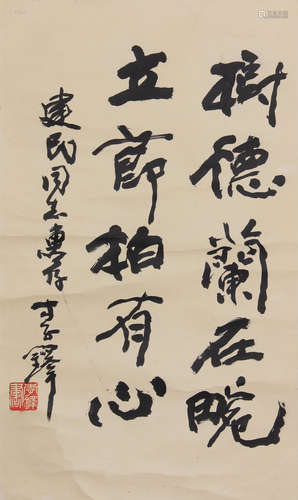 樹德蘭在畹
立節柏有心
建民同志惠存
李鐸